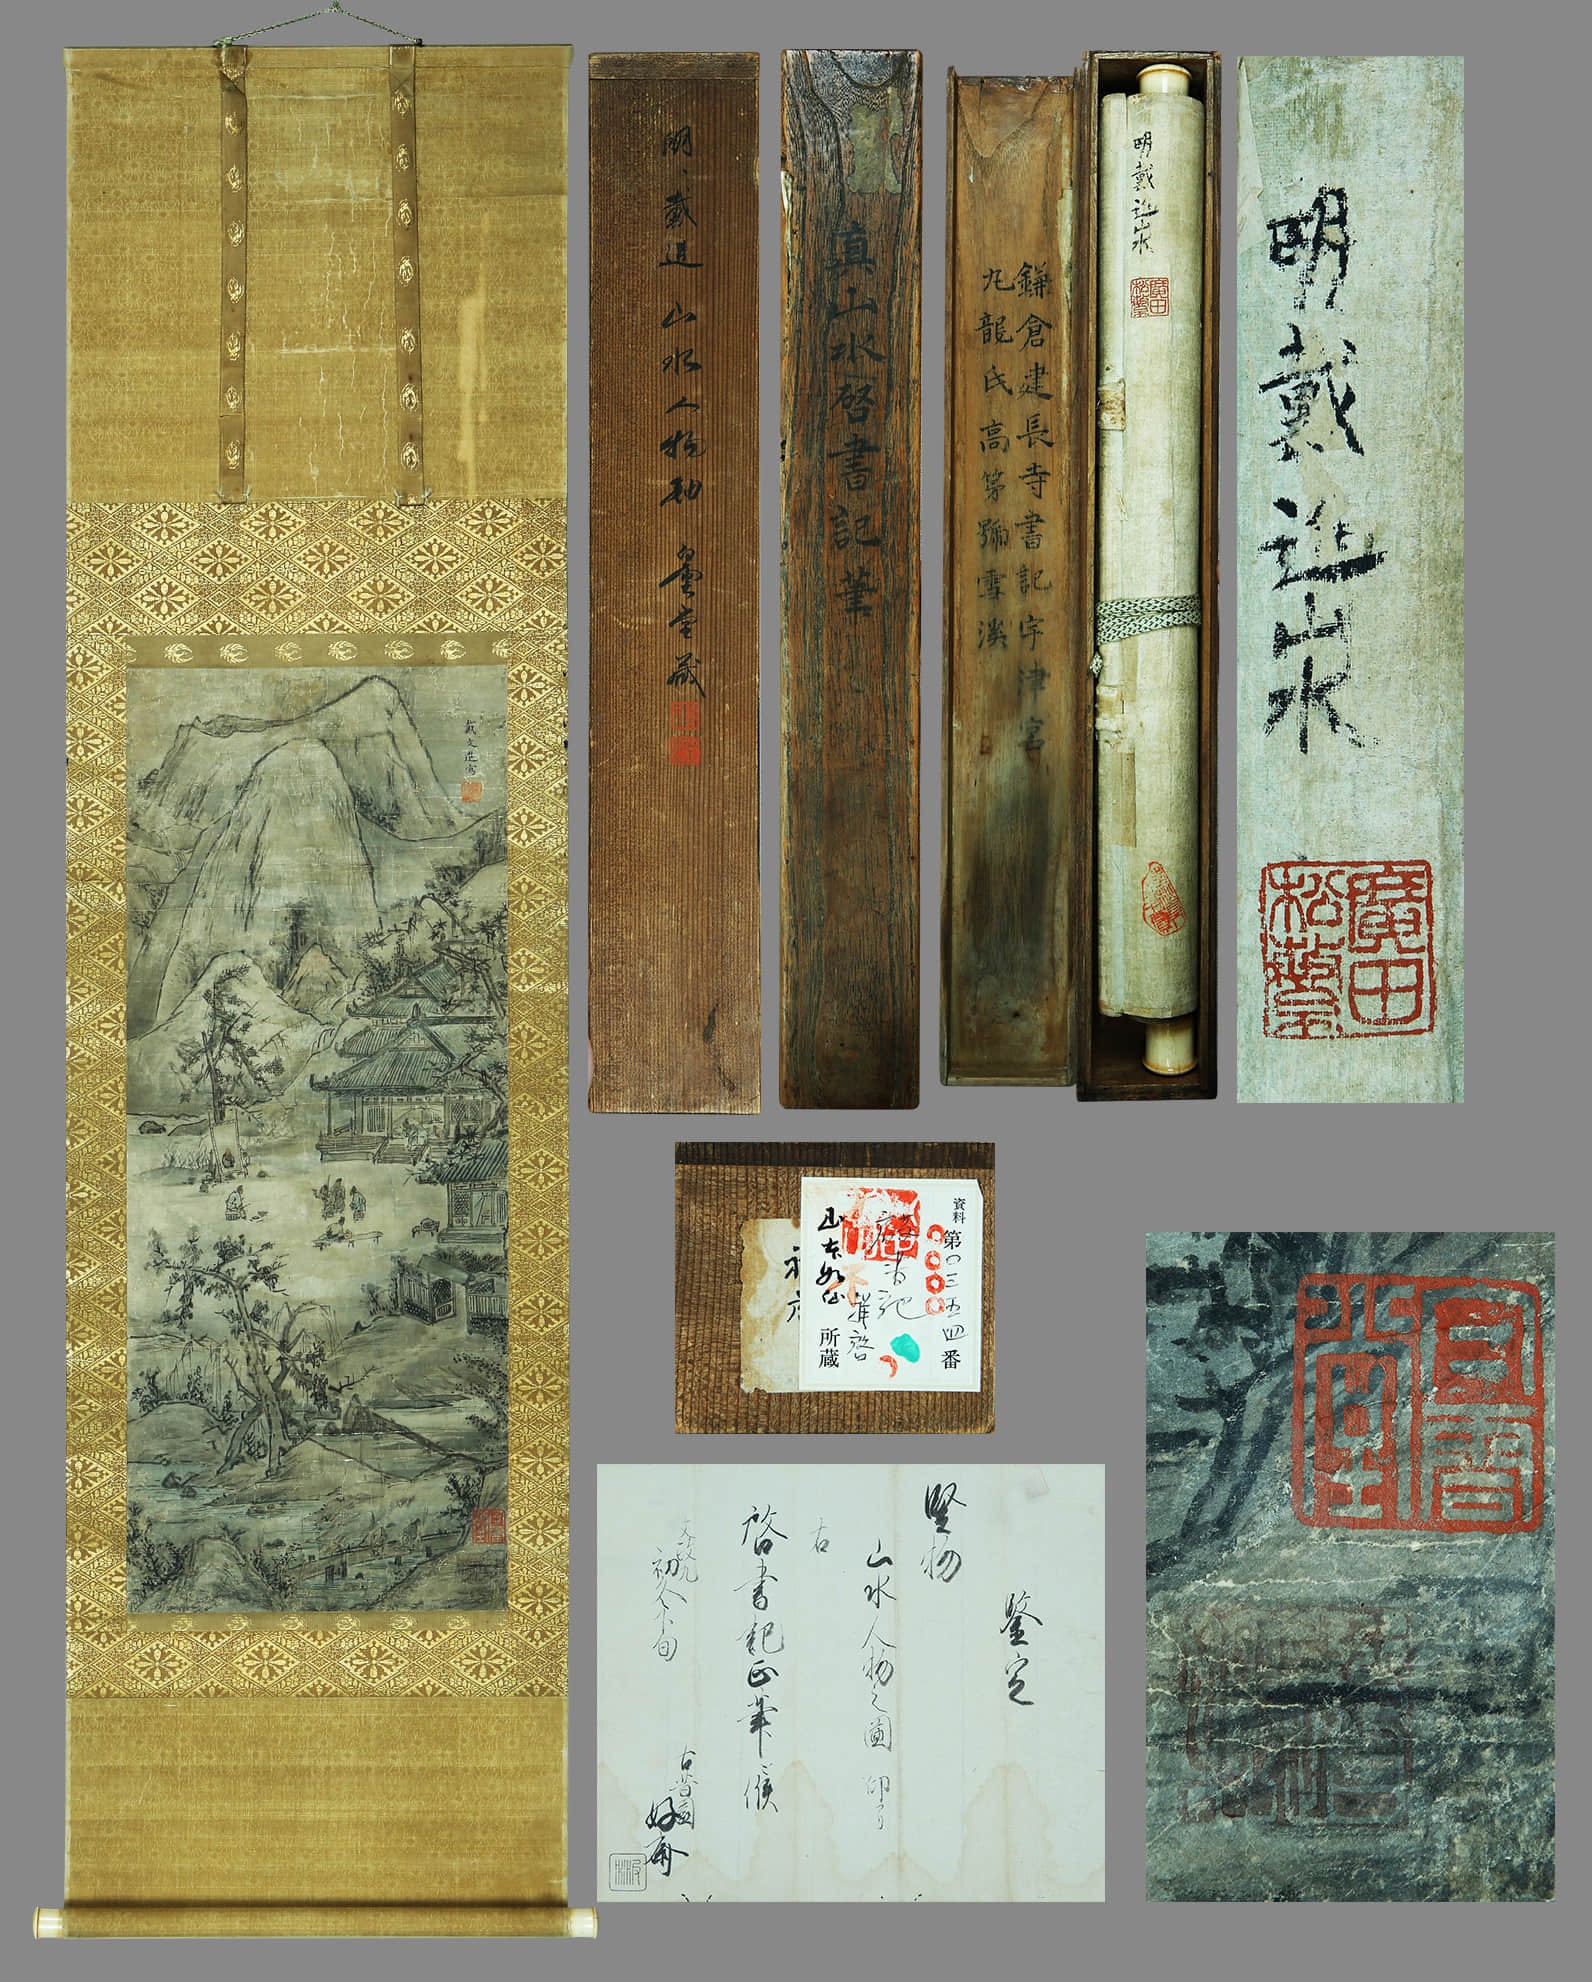 戴文進寫
明戴進山水人物軸
白雲堂藏
真山水啓書記筆
鎌倉建長寺書記字津宮
九龍氏高第號雪溪
明戴進山水
廣田松蔭
明戴進山水
廣田松蔭
資料
第〇三五四番
啓書記
祥啓
山本如仙
所蔵
鑒定
竪物
山水人物之圖
印
右
啓書記正筆候
初冬下旬
古昔園
好斎